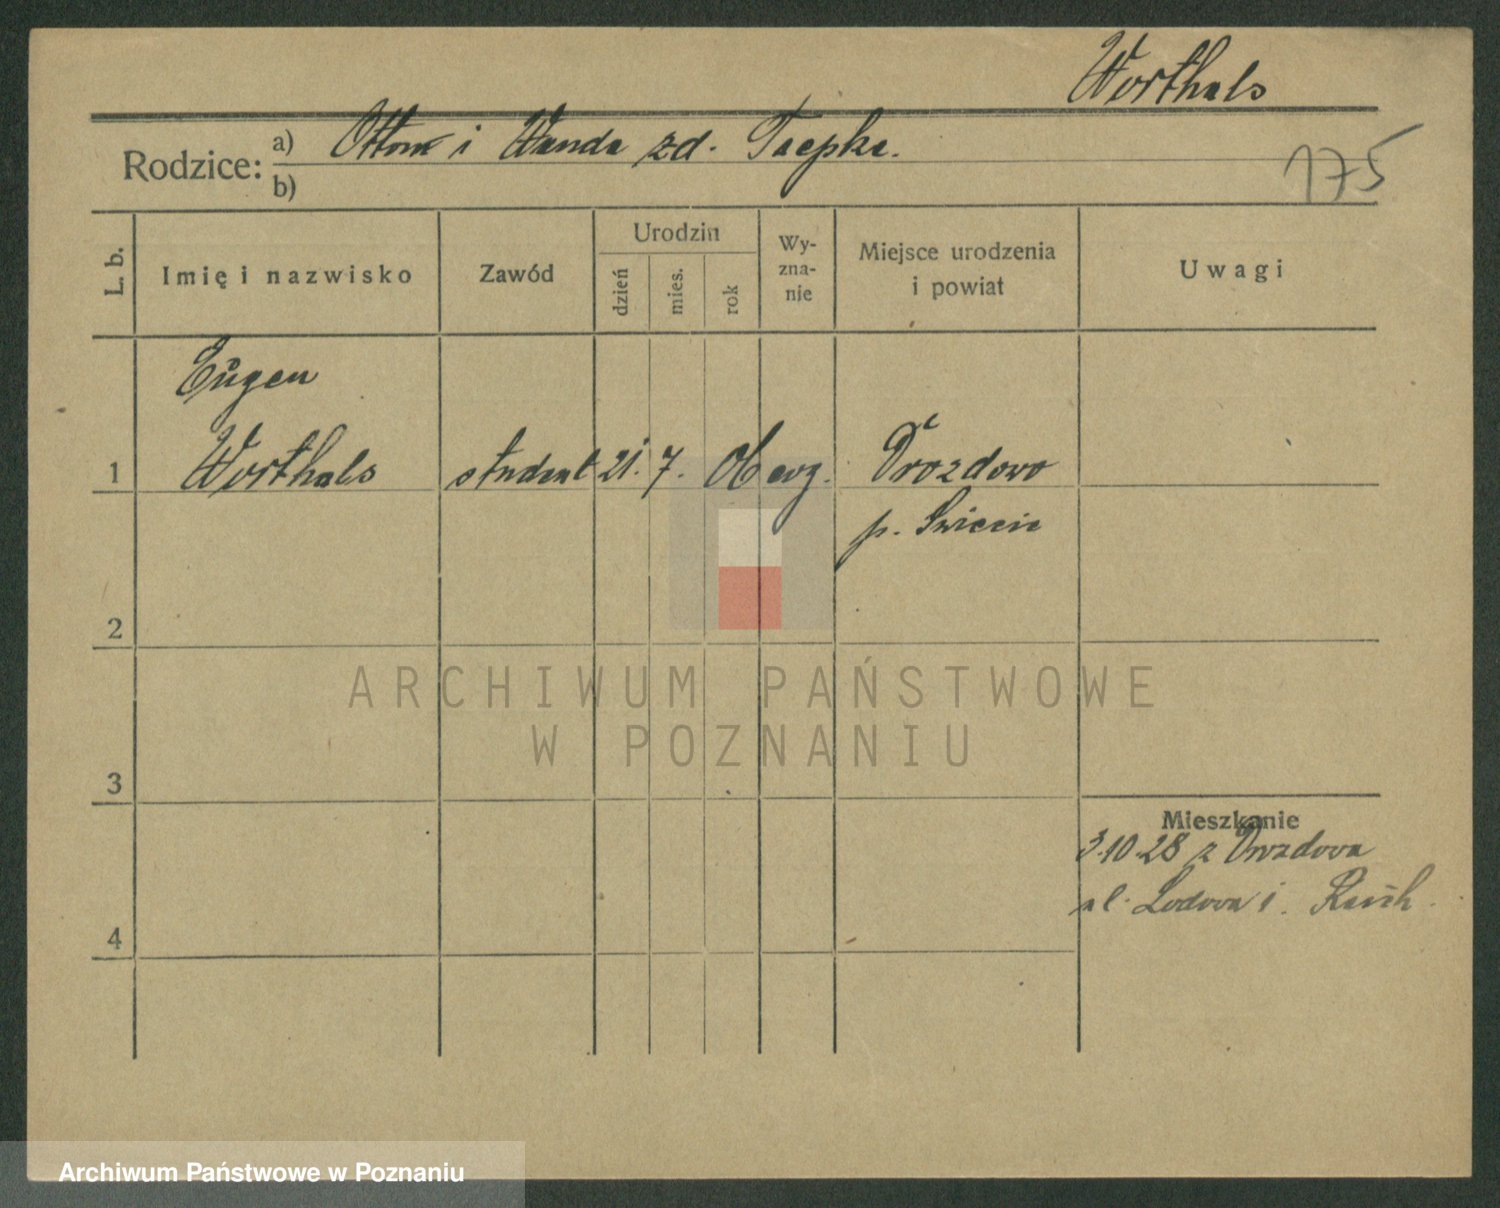 Worthals
Rodzice: a) Otton i Wanda zd. Taepke.
b)
175
L. b.
Imię i nazwisko
Zawód
Urodzin
dzień
mies.
rok
Wy-
zna-
nie
Miejsce urodzenia
i powiat
Uwagi
Eugen
1 Worthals student 21. 7. 06 evg. Drozdowo
p. Swiecie
2
3
4
Mieszkanie
3.10.28 z Drozdowa
ul.
ARCHIWUM PAŃSTWOWE
W POZNANIU
Archiwum Państwowe w Poznaniu